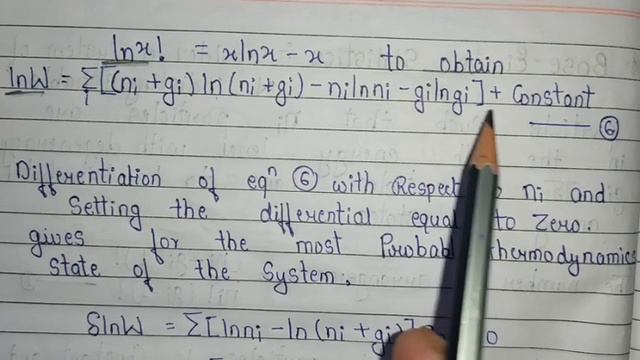 lnx! = xlnx - x to obtain
lnW = Σi [(ni + gi) ln (ni + gi) - ni ln ni - gi ln gi] + Constant
⑥
Differentiation of eqⁿ ⑥ with Respect ni and
Setting the differential equal to Zero.
gives for the most Probabl thermodynamics
State of the System.
SlnW = Σ [lnni - ln (ni + gi)] 0